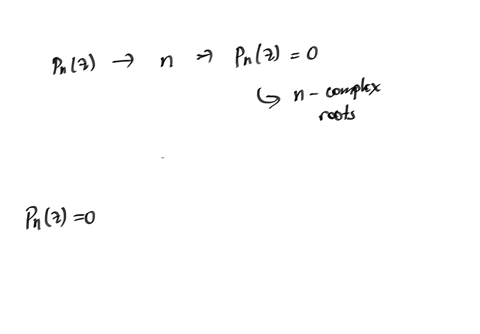 Pn(z) → n → Pn(z) = 0
↳ n - complex
roots
Pn(z) = 0